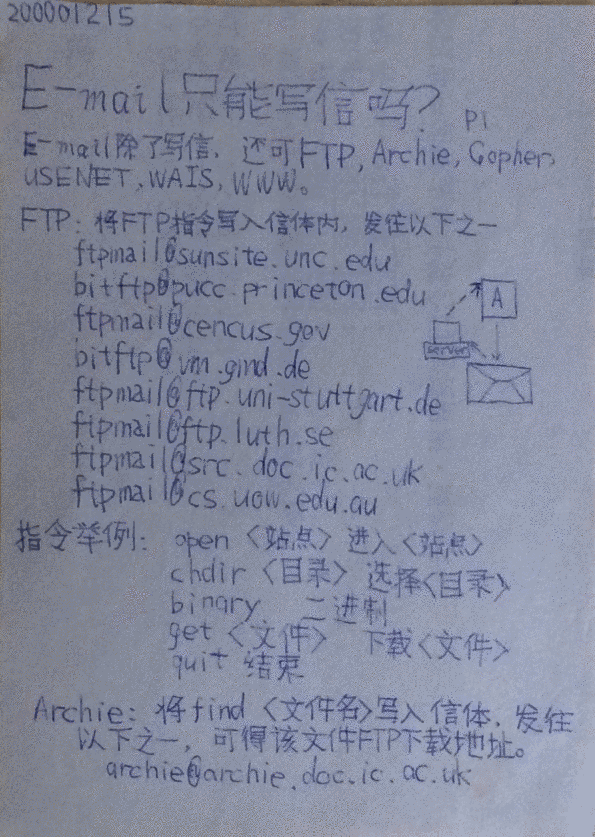 200001215
E-mail只能写信吗?
P1
E-mail除了写信，还可FTP, Archie, Gopher,
USENET, WAIS, WWW。
FTP：将FTP指令写入信体内，发往以下之一
ftpmail@sunsite.unc.edu
bitftp@pucc.princeton.edu
ftpmail@cencus.gov
bitftp@vm.gmd.de
ftpmail@ftp.uni-stuttgart.de
ftpmail@ftp.luth.se
ftpmail@src.doc.ic.ac.uk
ftpmail@cs.uow.edu.au
A
server
指令举例： open〈站点〉进入〈站点〉
chdir〈目录〉选择〈目录〉
binary 二进制
get〈文件〉 下载〈文件〉
quit 结束
Archie：将find〈文件名〉写入信体，发往
以下之一，可得该文件FTP下载地址。
archie@archie.doc.ic.ac.uk